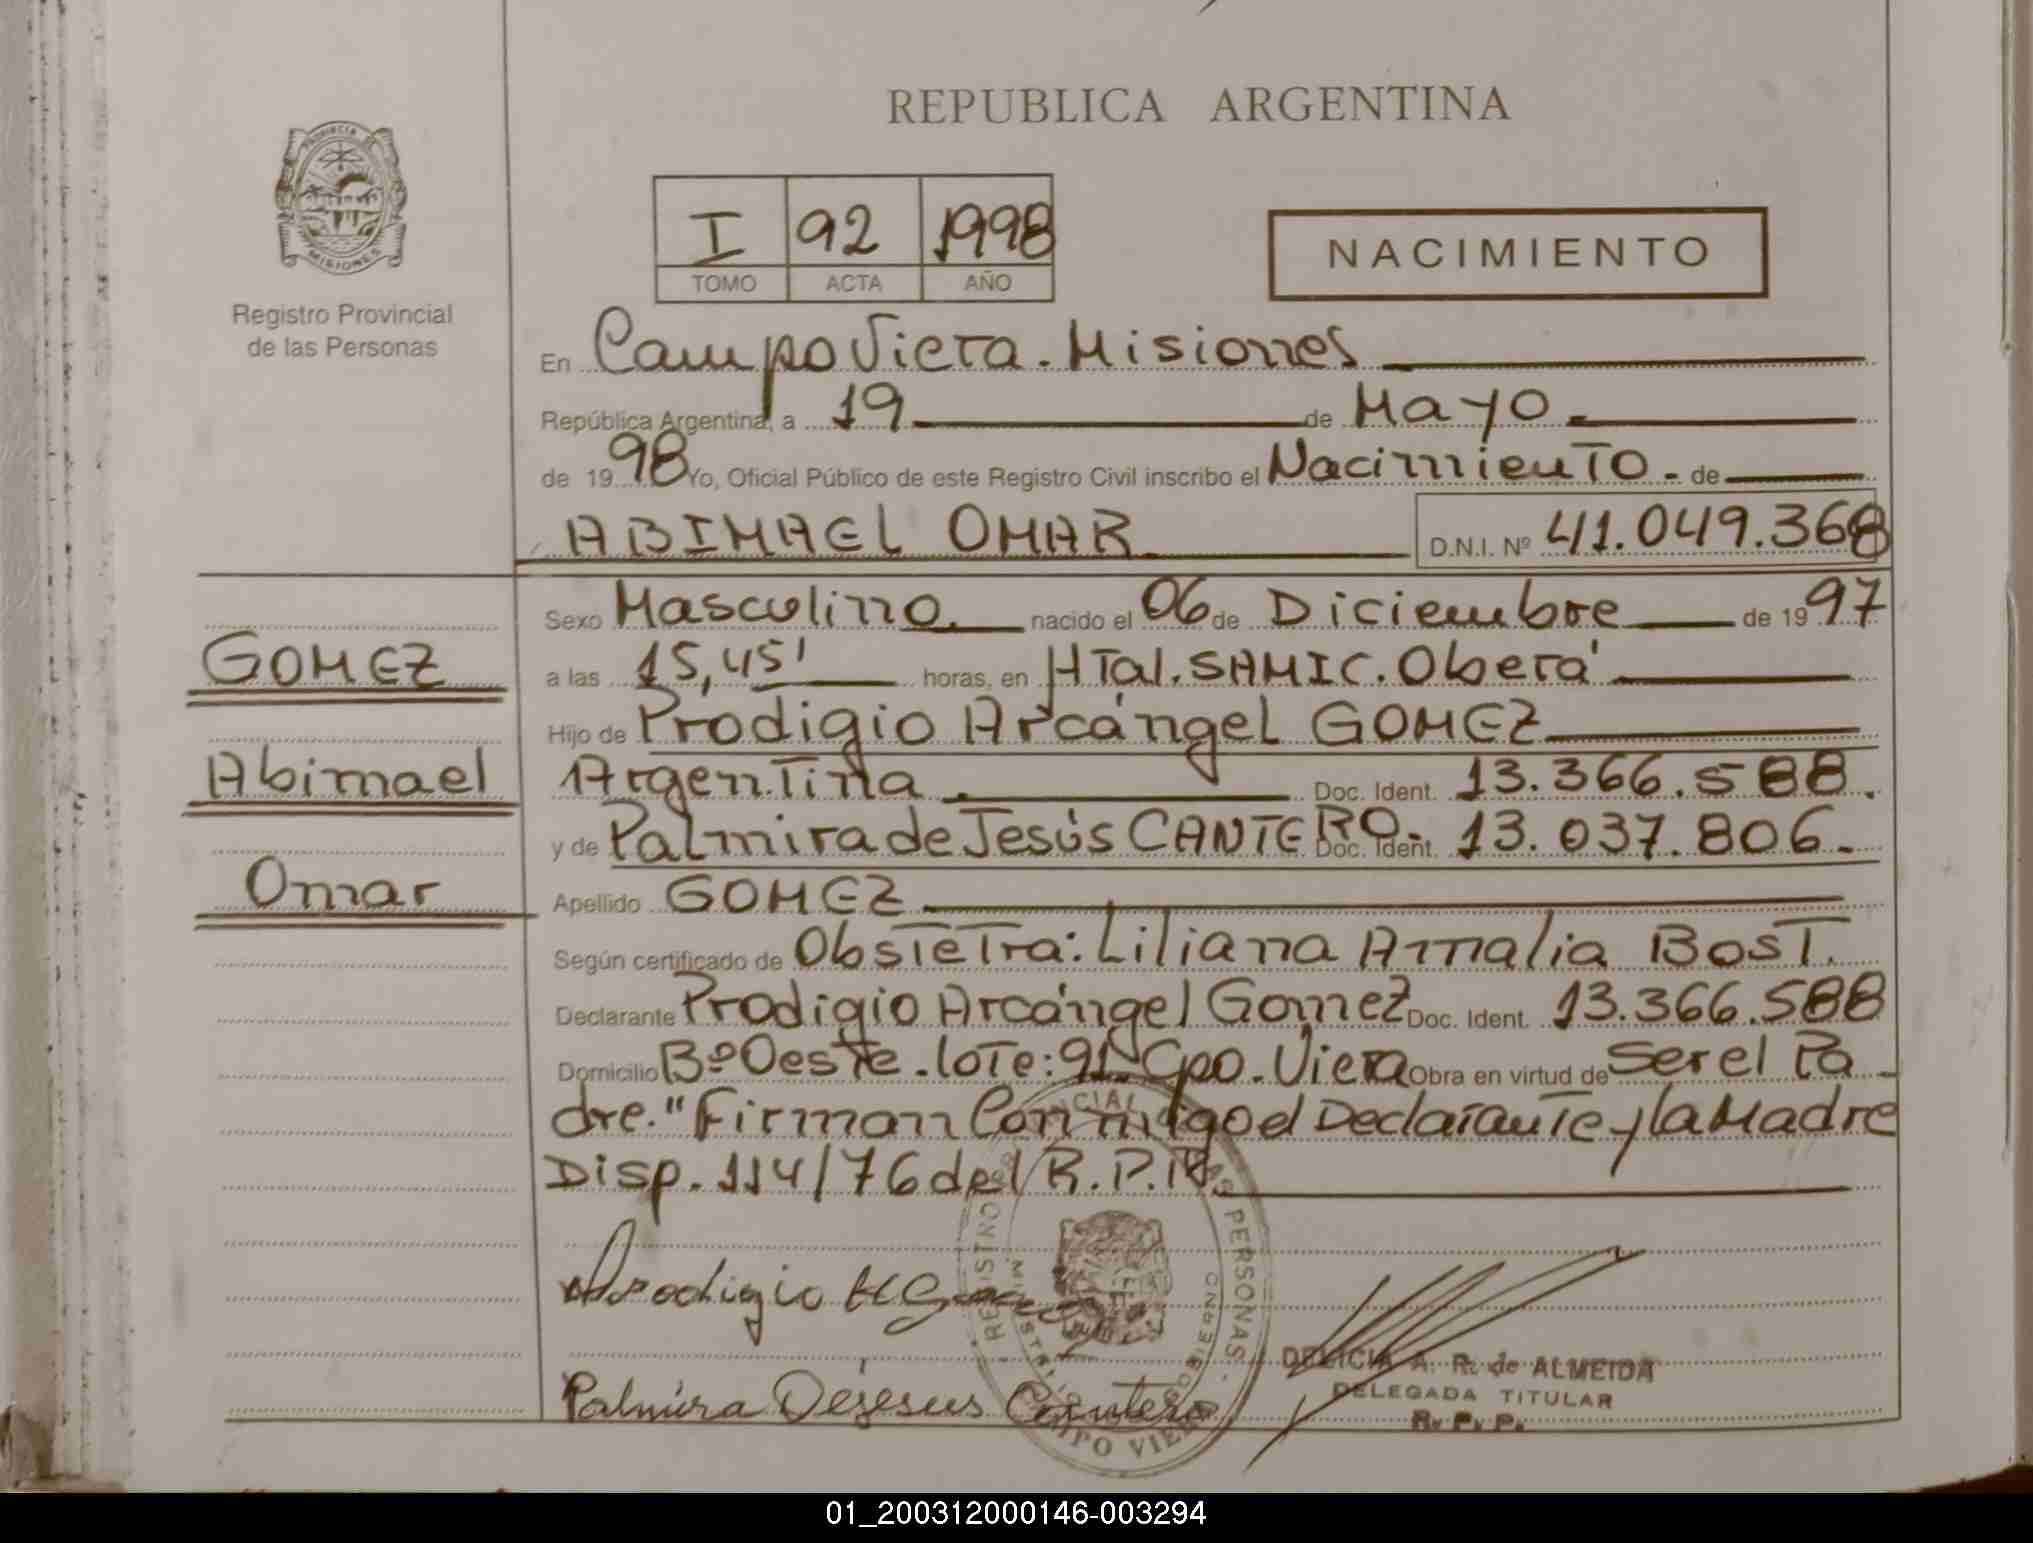 REPUBLICA ARGENTINA
PROVINCIA DE
MISIONES
Registro Provincial
de las Personas
I 92 1998
TOMO ACTA AÑO
NACIMIENTO
En Campo Viera. Misiones
República Argentina, a 19 de Mayo.
de 1998 Yo, Oficial Público de este Registro Civil inscribo el Nacimiento. de
ABIMAEL OMAR D.N.I. Nº 41.049.368
Sexo Masculino. nacido el 06 de Diciembre de 1997
GOMEZ
a las 15,45' horas, en HTal. SAMIC. Oberá
Hijo de Prodigio Arcángel GOMEZ
Abimael
Argentina. Doc. Ident. 13.366.588.
y de Palmira de Jesús CANTERO. Doc. Ident. 13.037.806.
Omar
Apellido GOMEZ
Según certificado de Obstetra: Liliana Amalia BOST.
Declarante Prodigio Arcángel Gomez Doc. Ident. 13.366.588
Domicilio Bº Oeste. lote: 91. Cpo. Viera Obra en virtud de Ser el Pa-
dre." Firman Conmigo el Declarante y la Madre
Disp. 114/76 del R.P.P.
Prodigio A Gomez
Palmira Dejesus Cantero
PERSONAS
CAMPO VIERA
DELICIA A. R. de ALMEIDA
DELEGADA TITULAR
R. P. P.
01_200312000146-003294